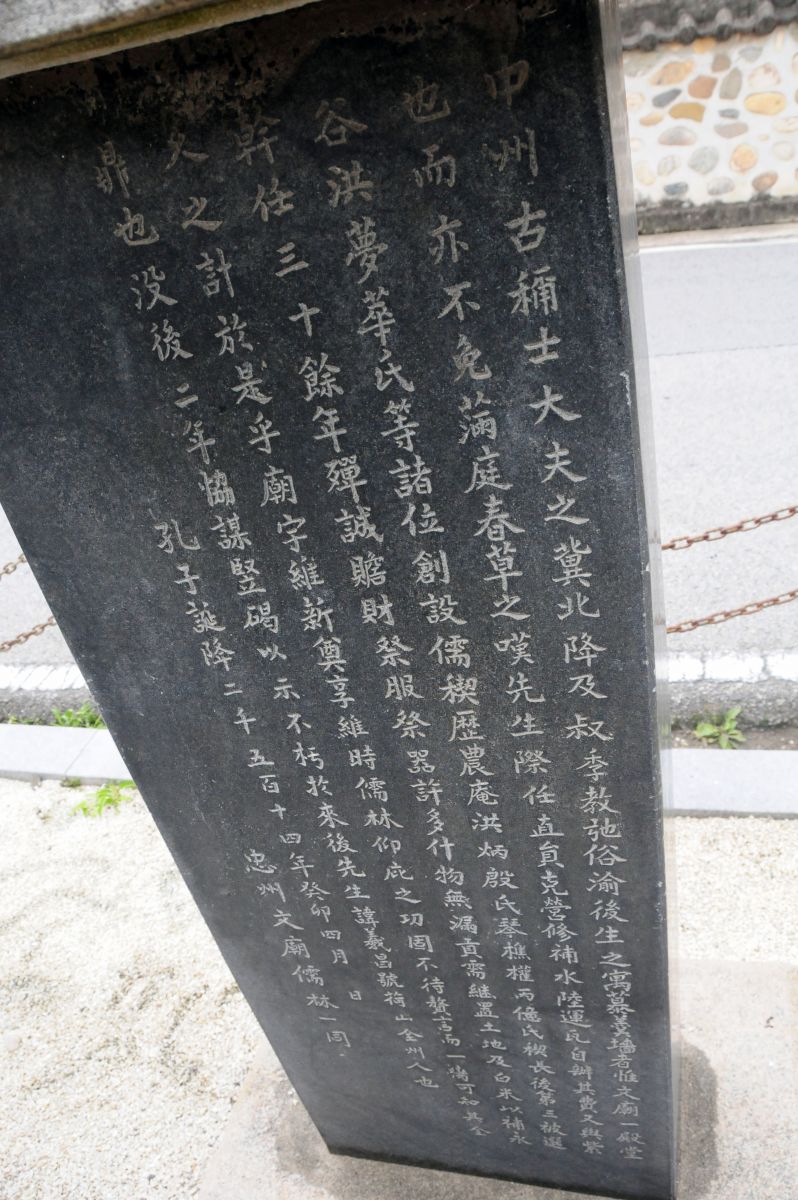 中州古稱士大夫之冀北降及叔季教弛俗渝後生之寓慕羹墻者惟文廟一殿堂
也而亦不免滿庭春草之嘆先生際任直員克營修補水陸運瓦自辦其費又與紫
谷洪夢華氏等諸位創設儒稧歷農庵洪炳殷氏琴樵權丙億氏稧長後第三被選
幹任三十餘年殫誠贍財祭服祭器許多什物無漏貢需継置土地及白米以補永
久之計於是乎廟宇維新奠享維時儒林仰庇之功固不待贅言而一臠可知其全
鼎也没後二年協謀竪碣以示不朽於來後先生諱羲昌號荷山全州人也
孔子誕降二千五百十四年癸卯四月 日
忠州文廟儒林一同